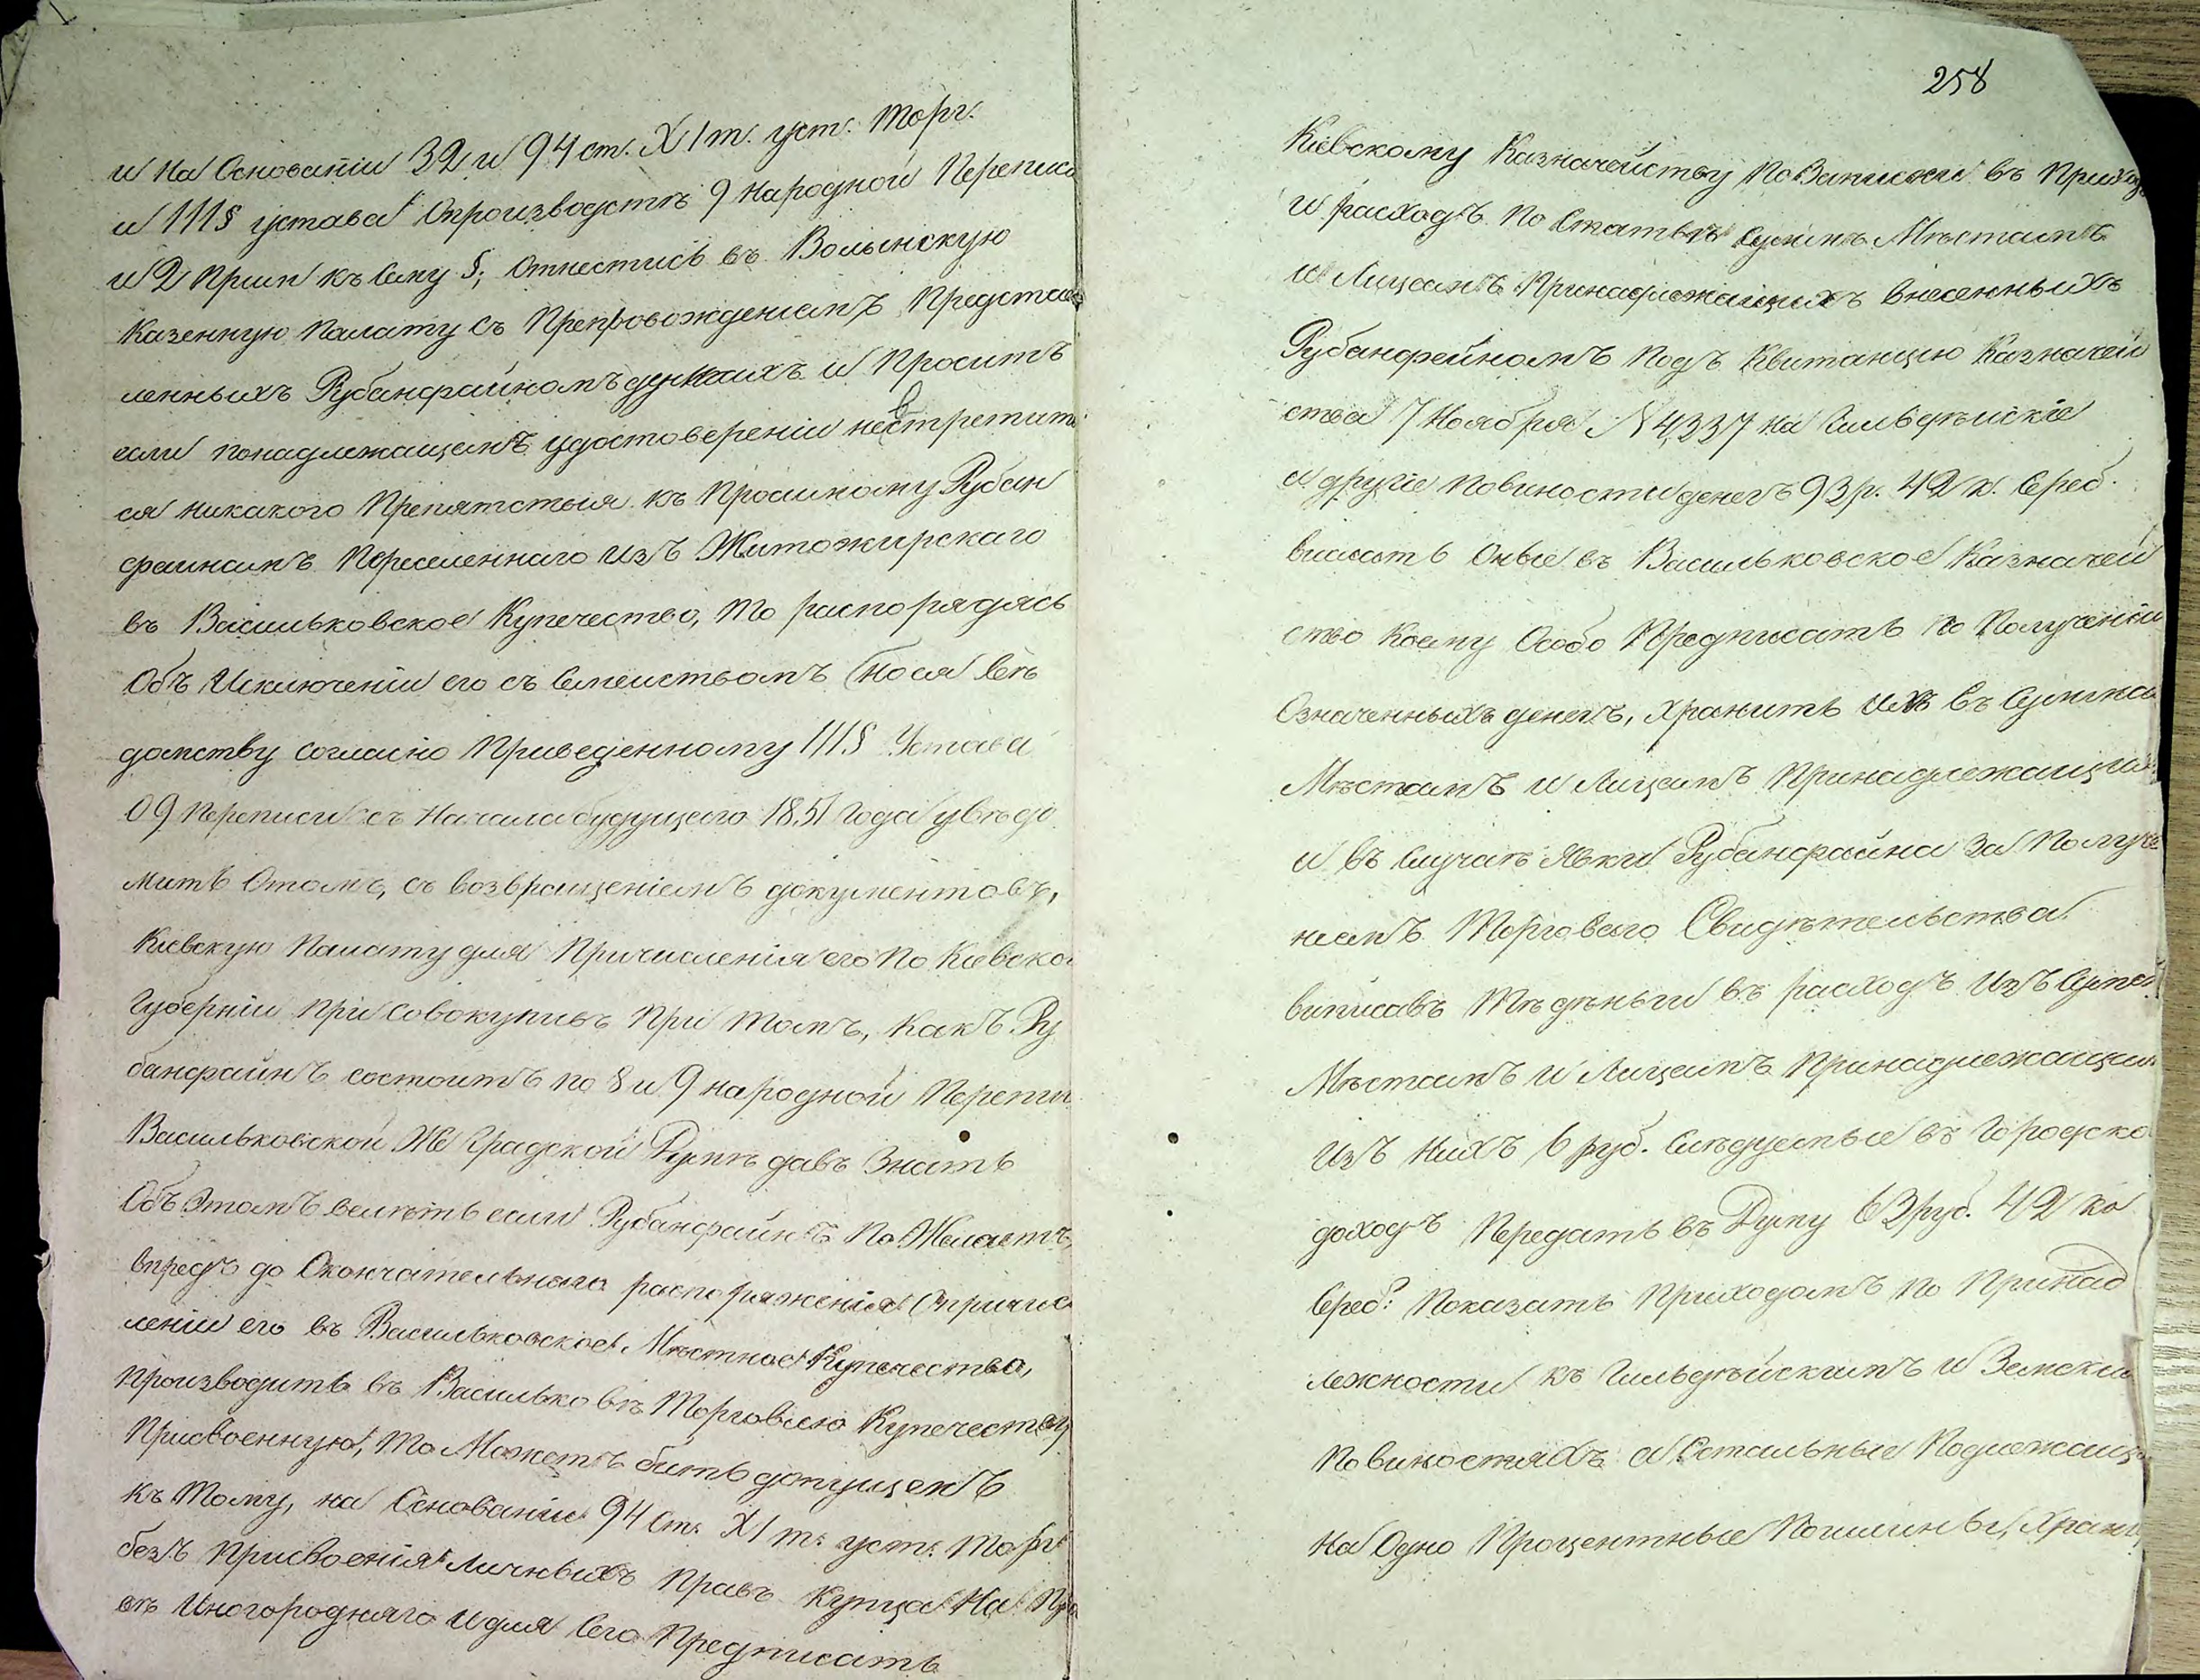 и На Основаніи 32 и 94 ст. XI т. уст. Торг.
и 111 § устава Опроизводстве 9 Народной Переписи
и 2 Прим къ Сему §; Отнестись въ Волынскую
Казенную Палату съ Препровожденіемъ Представ
ленныхъ Рубанфайномъ и Проситъ
если понадлежащемъ удостовереніи невстретит
ся никакого Препятствія къ Просимому Рубан
файномъ Переселенняго Изъ Житомирскаго
въ Васильковское Купечество, То распорядясь
Объ Исключеніи его съ Семействомъ Ве
домству согласно Приведенному 111 § Устава
О 9 Переписи съ Начала будущего 1851 Года уведо
митъ Отомъ, съ возвращеніемъ документовъ,
Кіевскую Палату для Причисленія его По Кіевской
Губерніи При совокупивъ При томъ, Какъ Ру
банфайнъ состоитъ по 8 и 9 народной Переписи
Васильковской Же Градской Думѣ давъ Знать
Объ Этомъ велѣть если Рубанфайнъ По Желаетъ,
впредь до Окончательнаго распоряженія Опричис
леніи его въ Васильковское Мѣстное Купечество,
Производить въ Васильковѣ Торговлю Купечеству
Присвоенную, То Можетъ бить допущенъ
къ Тому, на Основаніи 94 Ст. XI т. уст. Торг
безъ Присвоенія Личныхъ Правъ Купца На Пра
вѣ Иногородняго И для Сего Предписать
258
Кіевскому Казначейству По Записки въ Приход
и расходъ По Статьѣ Сумъ Мѣстамъ
и Лицамъ Принадлежащихъ внесенныхъ
Рубанфейномъ Подъ Квитанцію Казначей
ства 7 Ноября № 4237 на Гильдѣйскіе
и другіе Повиности денегъ 93 р. 42 к. Сереб.
вислать Оные въ Васильковское Казначей
ство Коему Особо Предписать По Полученіи
Означенныхъ денегъ, хранить Ихъ въ Сумма
Мѣстамъ и Лицамъ Принадлежащих
и въ Случаѣ Явки Рубанфайна За Получе
ніемъ Торговаго Свидѣтельства
виписавъ Тѣ дѣньги въ расходъ Изъ Сумм
Мѣстамъ и Лицамъ Принадлежащих
Изъ Нихъ 6 руб. Слѣдуемые въ Городско
доходъ Передать въ Думу 63 руб. 42 ко
Сереб: Показать Приходомъ По Принад
лежности къ Гильдѣйскимъ и Земским
Повиностяхъ а Остальные Подлежащ
На Одно Процентные Пошлины, Храни